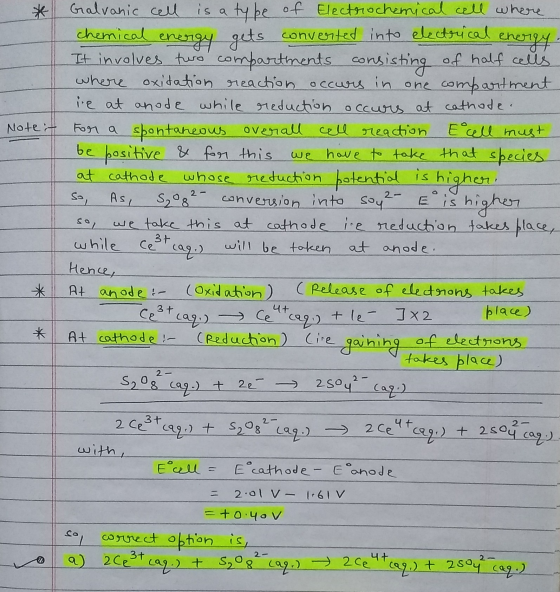 * Galvanic cell is a type of Electrochemical cell where
chemical energy gets converted into electrical energy.
It involves two compartments consisting of half cells
where oxidation reaction occurs in one compartment
i.e at anode while reduction occurs at cathode.
Note:- For a spontaneous overall cell reaction E°cell must
be positive & for this we have to take that species
at cathode whose reduction potential is higher.
So, As, S₂O₈²⁻ conversion into SO₄²⁻ E° is higher
so, we take this at cathode i.e reduction takes place,
while Ce³⁺(aq.) will be taken at anode.
Hence,
* At anode :- (Oxidation) (Release of electrons takes
place)
Ce³⁺(aq.) → Ce⁴⁺(aq.) + 1e⁻ ]×2
* At cathode :- (Reduction) (i.e gaining of electrons
takes place)
S₂O₈²⁻(aq.) + 2e⁻ → 2SO₄²⁻(aq.)
2Ce³⁺(aq.) + S₂O₈²⁻(aq.) → 2Ce⁴⁺(aq.) + 2SO₄²⁻(aq.)
with,
E°cell = E°cathode - E°anode
= 2.01 V - 1.61 V
= +0.40 V
so, correct option is,
a) 2Ce³⁺(aq.) + S₂O₈²⁻(aq.) → 2Ce⁴⁺(aq.) + 2SO₄²⁻(aq.)